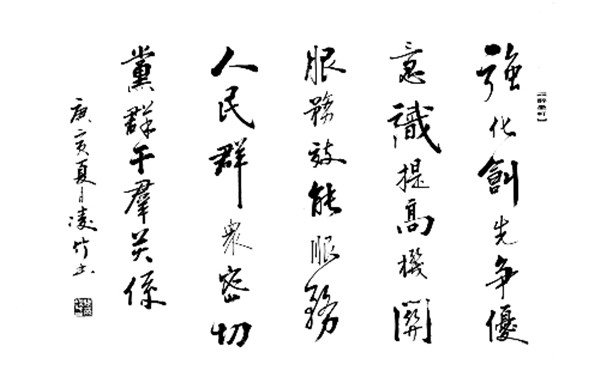 強化創先争優
意識提高機關
服務效能服務
人民群衆密切
黨群干羣关係
庚寅夏日凌竹书